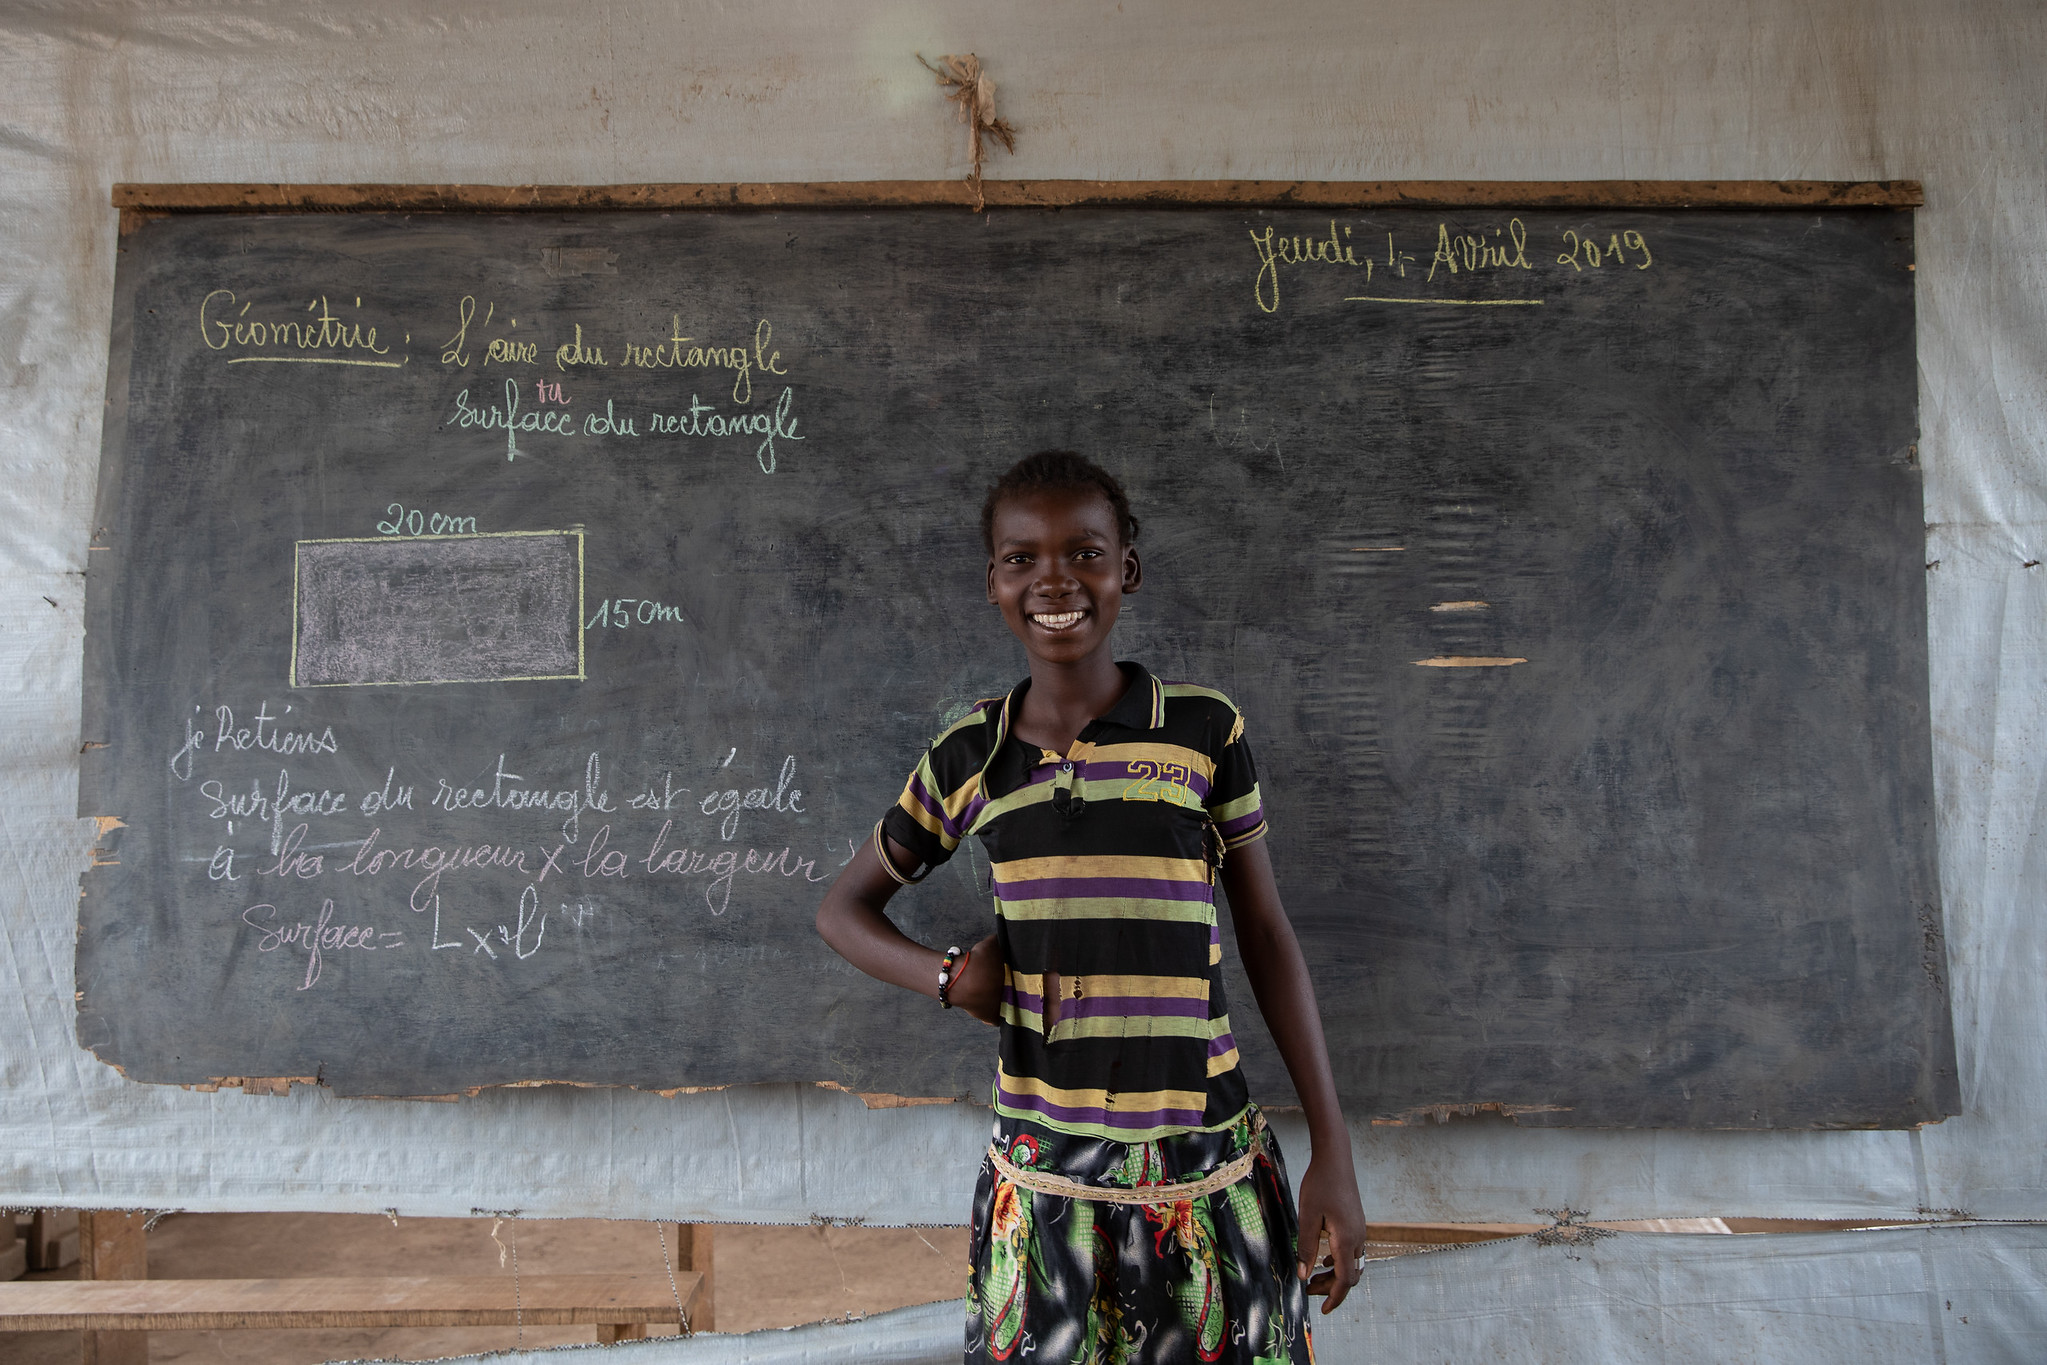 Jeudi, 4 Avril 2019
Géométrie : L'aire du rectangle
ou
Surface du rectangle
20 cm
15 cm
je Retiens
Surface du rectangle est égale
à la longueur x la largeur
Surface = L x l
23